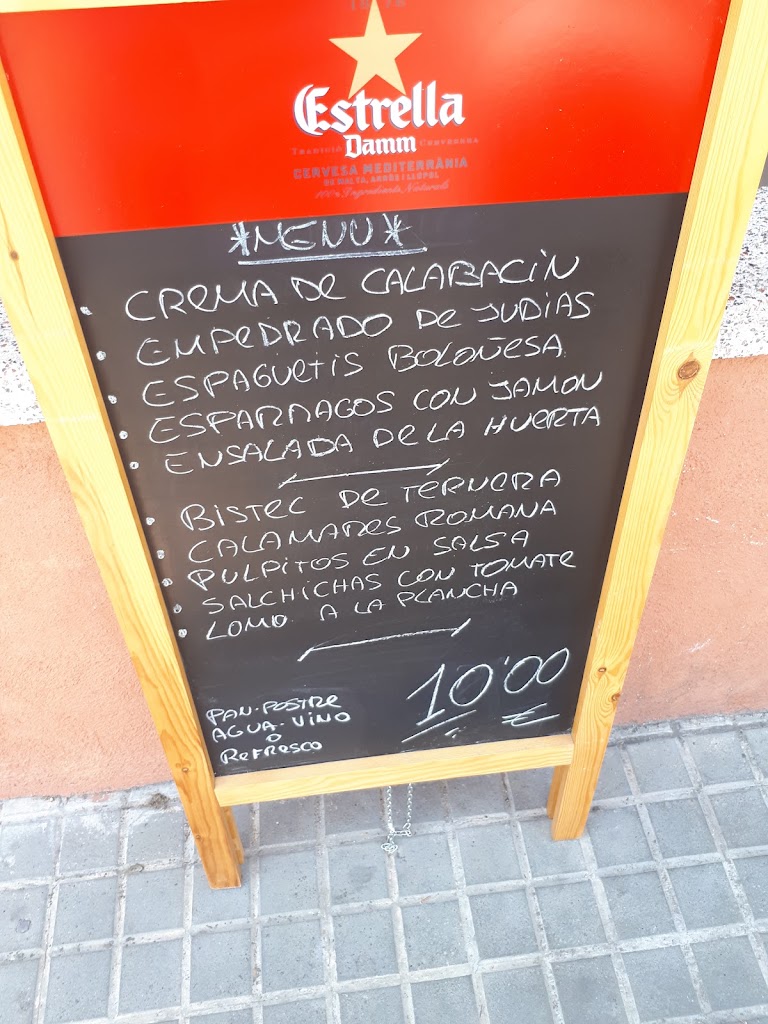 1876
Estrella
Damm
TRADICIÓ CERVESERA
CERVESA MEDITERRÀNIA
DE MALTA, ARRÒS I LLÚPOL
100% Ingredients Naturals
*MENU*
CREMA DE CALABACIN
EMPEDRADO DE JUDIAS
ESPAGUETIS BOLOÑESA
ESPARRAGOS CON JAMON
ENSALADA DE LA HUERTA
BISTEC DE TERNERA
CALAMARES ROMANA
PULPITOS EN SALSA
SALCHICHAS CON TOMATE
LOMO A LA PLANCHA
PAN-POSTRE
AGUA-VINO
O
REFRESCO
10'00
€